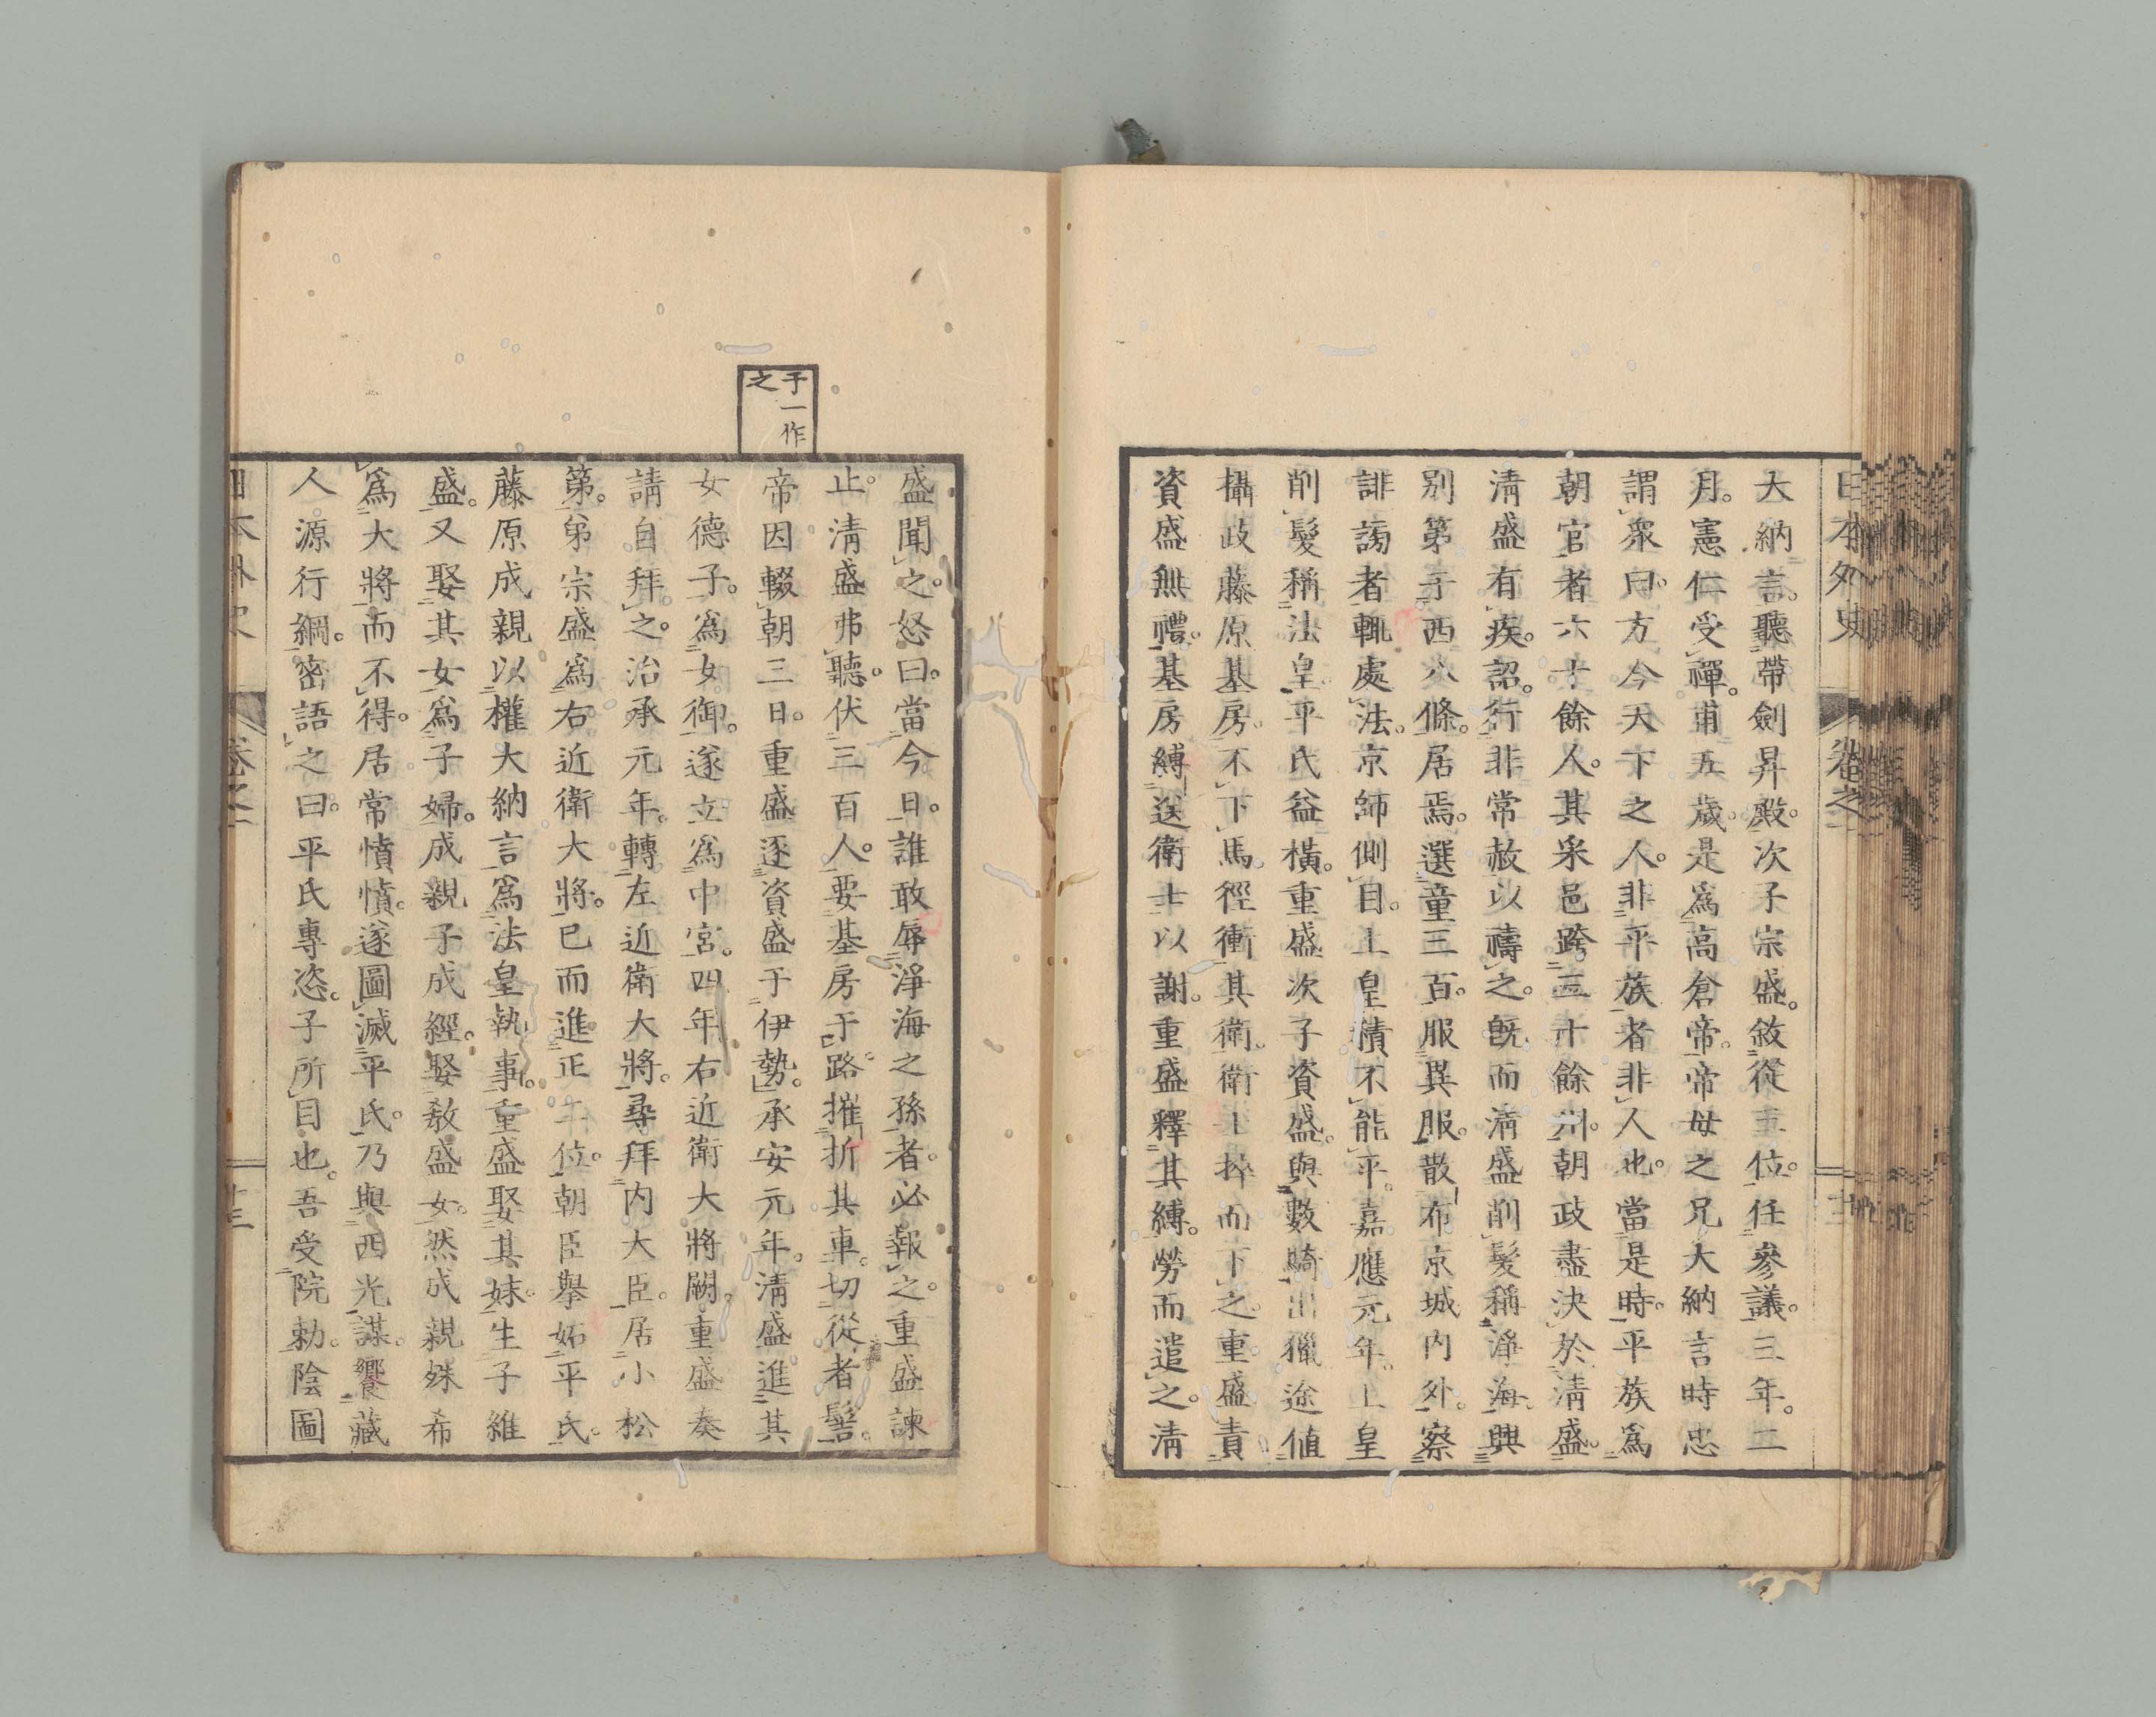 日本外史 卷之一
大納言。聽帶劍昇殿。次子宗盛。敘從三位。任參議。三年。二
月。憲仁受禪。甫五歲。是爲高倉帝。帝母之兄大納言時忠
謂衆曰。方今天下之人。非平族者非人也。當是時。平族爲
朝官者六十餘人。其采邑跨三十餘州。朝政盡決於淸盛。
淸盛有疾。詔。行非常赦以禱之。旣而淸盛削髮稱淨海。興
別第于西八條。居焉。選童三百。服異服。散布京城内外。察
誹謗者輒處法。京師側目。上皇積不能平。嘉應元年。上皇
削髮稱法皇。平氏益橫。重盛次子資盛。與數騎出獵途値
攝政藤原基房。不下馬。徑衝其衛。衛士捽而下之。重盛責
資盛無禮。基房縛送衛士以謝。重盛釋其縛。勞而遣之。淸
于一作
之
盛聞之。怒曰。當今日。誰敢辱淨海之孫者。必報之。重盛諫
止。淸盛弗聽。伏三百人。要基房于路。摧折其車。切從者髻。
帝因輟朝三日。重盛逐資盛于伊勢。承安元年。淸盛進其
女德子。爲女御。遂立爲中宮。四年右近衛大將闕。重盛奏
請自拜之。治承元年。轉左近衛大將。尋拜内大臣。居小松
第。弟宗盛爲右近衛大將。已而進正二位。朝臣擧妬平氏。
藤原成親以權大納言爲法皇執事。重盛娶其妹。生子維
盛。又娶其女爲子婦。成親子成經。娶敎盛女。然成親殊希
爲大將而不得。居常憤憤。遂圖滅平氏。乃與西光謀。饗藏
人源行綱。密語之曰。平氏專恣。子所目也。吾受院勅。陰圖
日本外史 卷之一 廿三